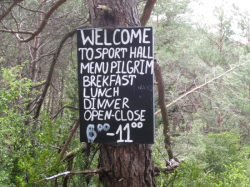 WELCOME
TO SPORT HALL
MENU PILGRIM
BREKFAST
LUNCH
DIMMER
OPEN-CLOSE
6⁰⁰-11⁰⁰